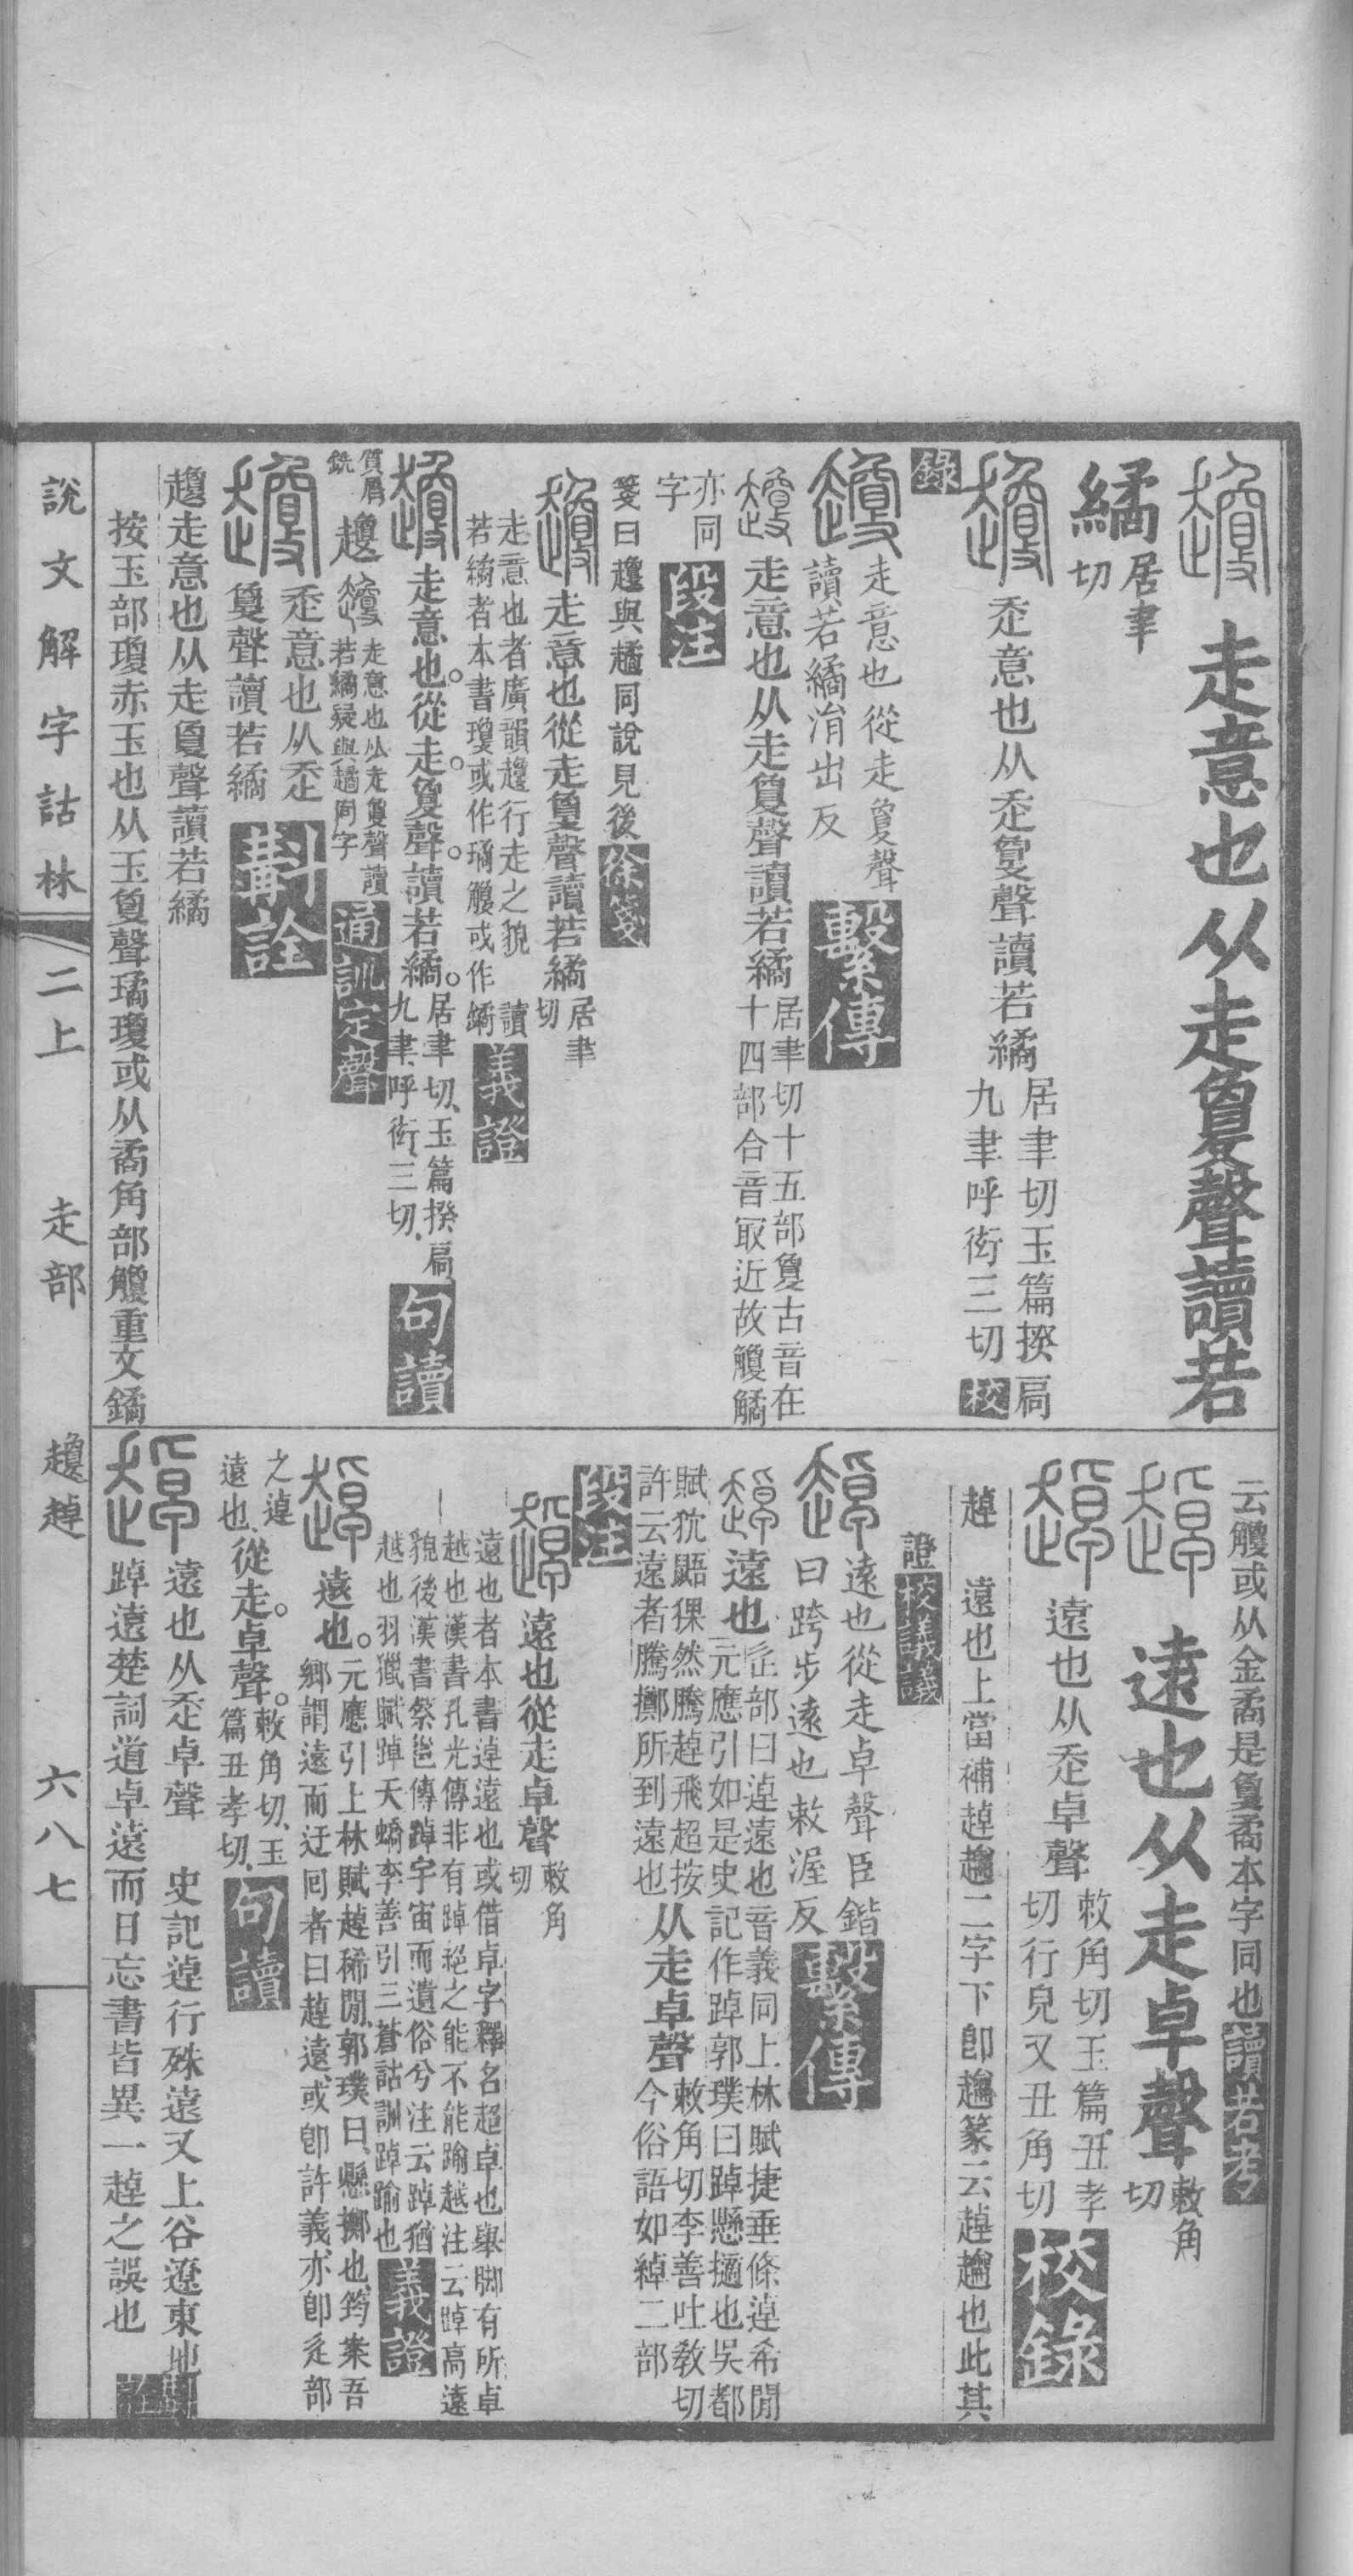 走意也从走敻聲讀若
繘居聿切
走意也从走敻聲讀若繘居聿切玉篇揆扃九聿呼衒三切校
錄
走意也從走敻聲讀若繘消出反繫傳
走意也从走敻聲讀若繘居聿切十五部敻古音在十四部合音冣近故觼觿
亦同字段注
箋曰趮與趫同說見後徐箋
走意也從走敻聲讀若繘居聿切
走意也者廣韻趮行走之貌讀若繘者本書瓊或作璚觼或作鐍義證
走意也。從走。敻聲。讀若繘。居聿切、玉篇揆扃、九聿、呼衒、三切、句讀
走意也从走敻聲讀若繘疑與趫同字通訓定聲
走意也从走敻聲讀若繘斠詮
走意也从走敻聲讀若繘
按玉部瓊赤玉也从玉敻聲璚瓊或从矞角部觼重文鐍
云觼或从金矞是敻矞本字同也讀若考
遠也从走卓聲敕角切
遠也从走卓聲敕角切玉篇丑孝切行皃又丑角切校錄
趠　遠也上當補趠趫二字下卽趫篆云趠趫也此其
證校議議
遠也從走卓聲臣鍇曰跨步遠也敕渥反繫傳
遠也辵部曰逴遠也音義同上林賦捷垂條逴希閒元應引如是史記作踔郭璞曰踔懸擿也吳都
賦狖鼯猓然騰趠飛超按許云遠者騰擲所到遠也从走卓聲敕角切李善吐敎切今俗語如綽二部
段注
遠也從走卓聲敕角切
遠也者本書逴遠也或借卓字釋名超卓也舉脚有所卓越也漢書孔光傳非有踔絕之能不能踰越注云踔高遠
貌後漢書祭邕傳踔宇宙而遺俗兮注云踔猶越也羽獵賦踔夭蟜李善引三蒼詁訓踔踰也義證
遠也。元應引上林賦趠稀閒、郭璞曰、懸擲也、筠案吾鄉謂遠而迂回者曰趠遠、或卽許義、亦卽辵部
之逴遠也、從走。卓聲。敕角切、玉篇丑孝切、句讀
遠也从走卓聲　史記逴行殊遠又上谷遼東地踔遠楚詞道卓遠而日忘書皆異一趠之誤也斠詮
說文解字詁林　二上　走部　趠　六八七